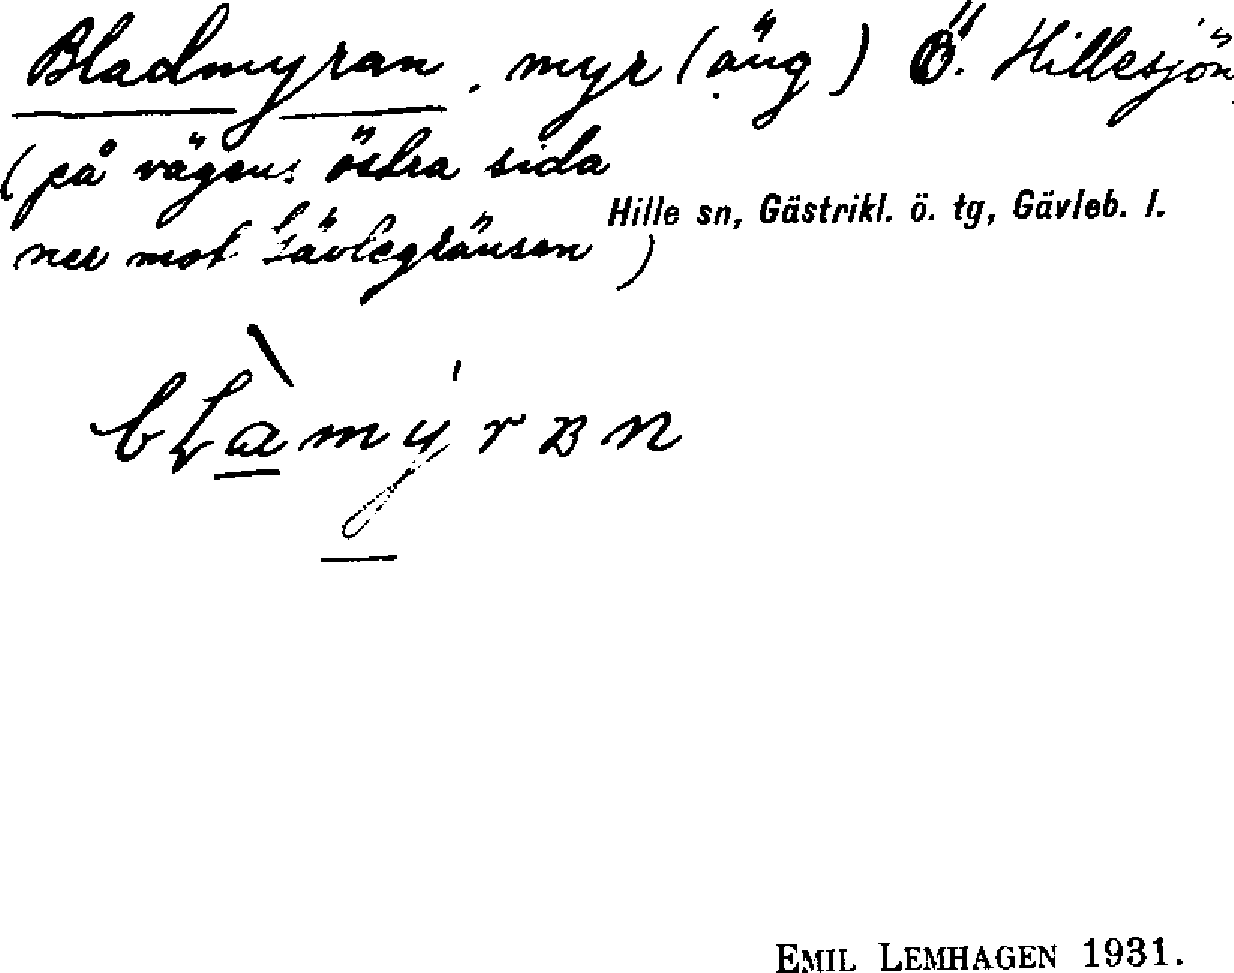 Bladmyran, myr (äng) Ö. Hillesjön
(på vägens östra sida
Hille sn, Gästrikl. ö. tg, Gävleb. l.
ner mot Gävlegränsen)
EMIL LEMHAGEN 1931.